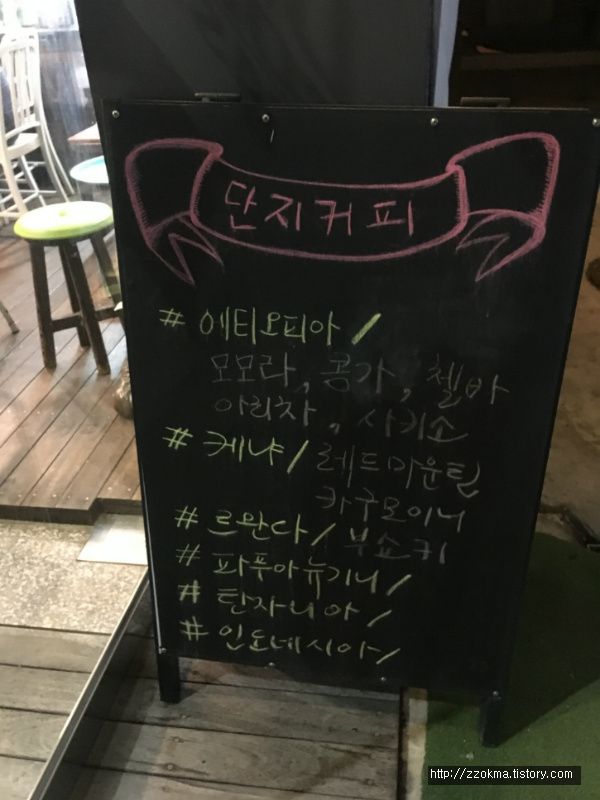 단지커피
# 에티오피아 /
모모라, 콩가, 첼바
아리차, 사키소
# 케냐 / 레드마운틴
카구모이니
# 르완다 / 부쇼키
# 파푸아뉴기니 /
# 탄자니아 /
# 인도네시아 /
http://zzokma.tistory.com